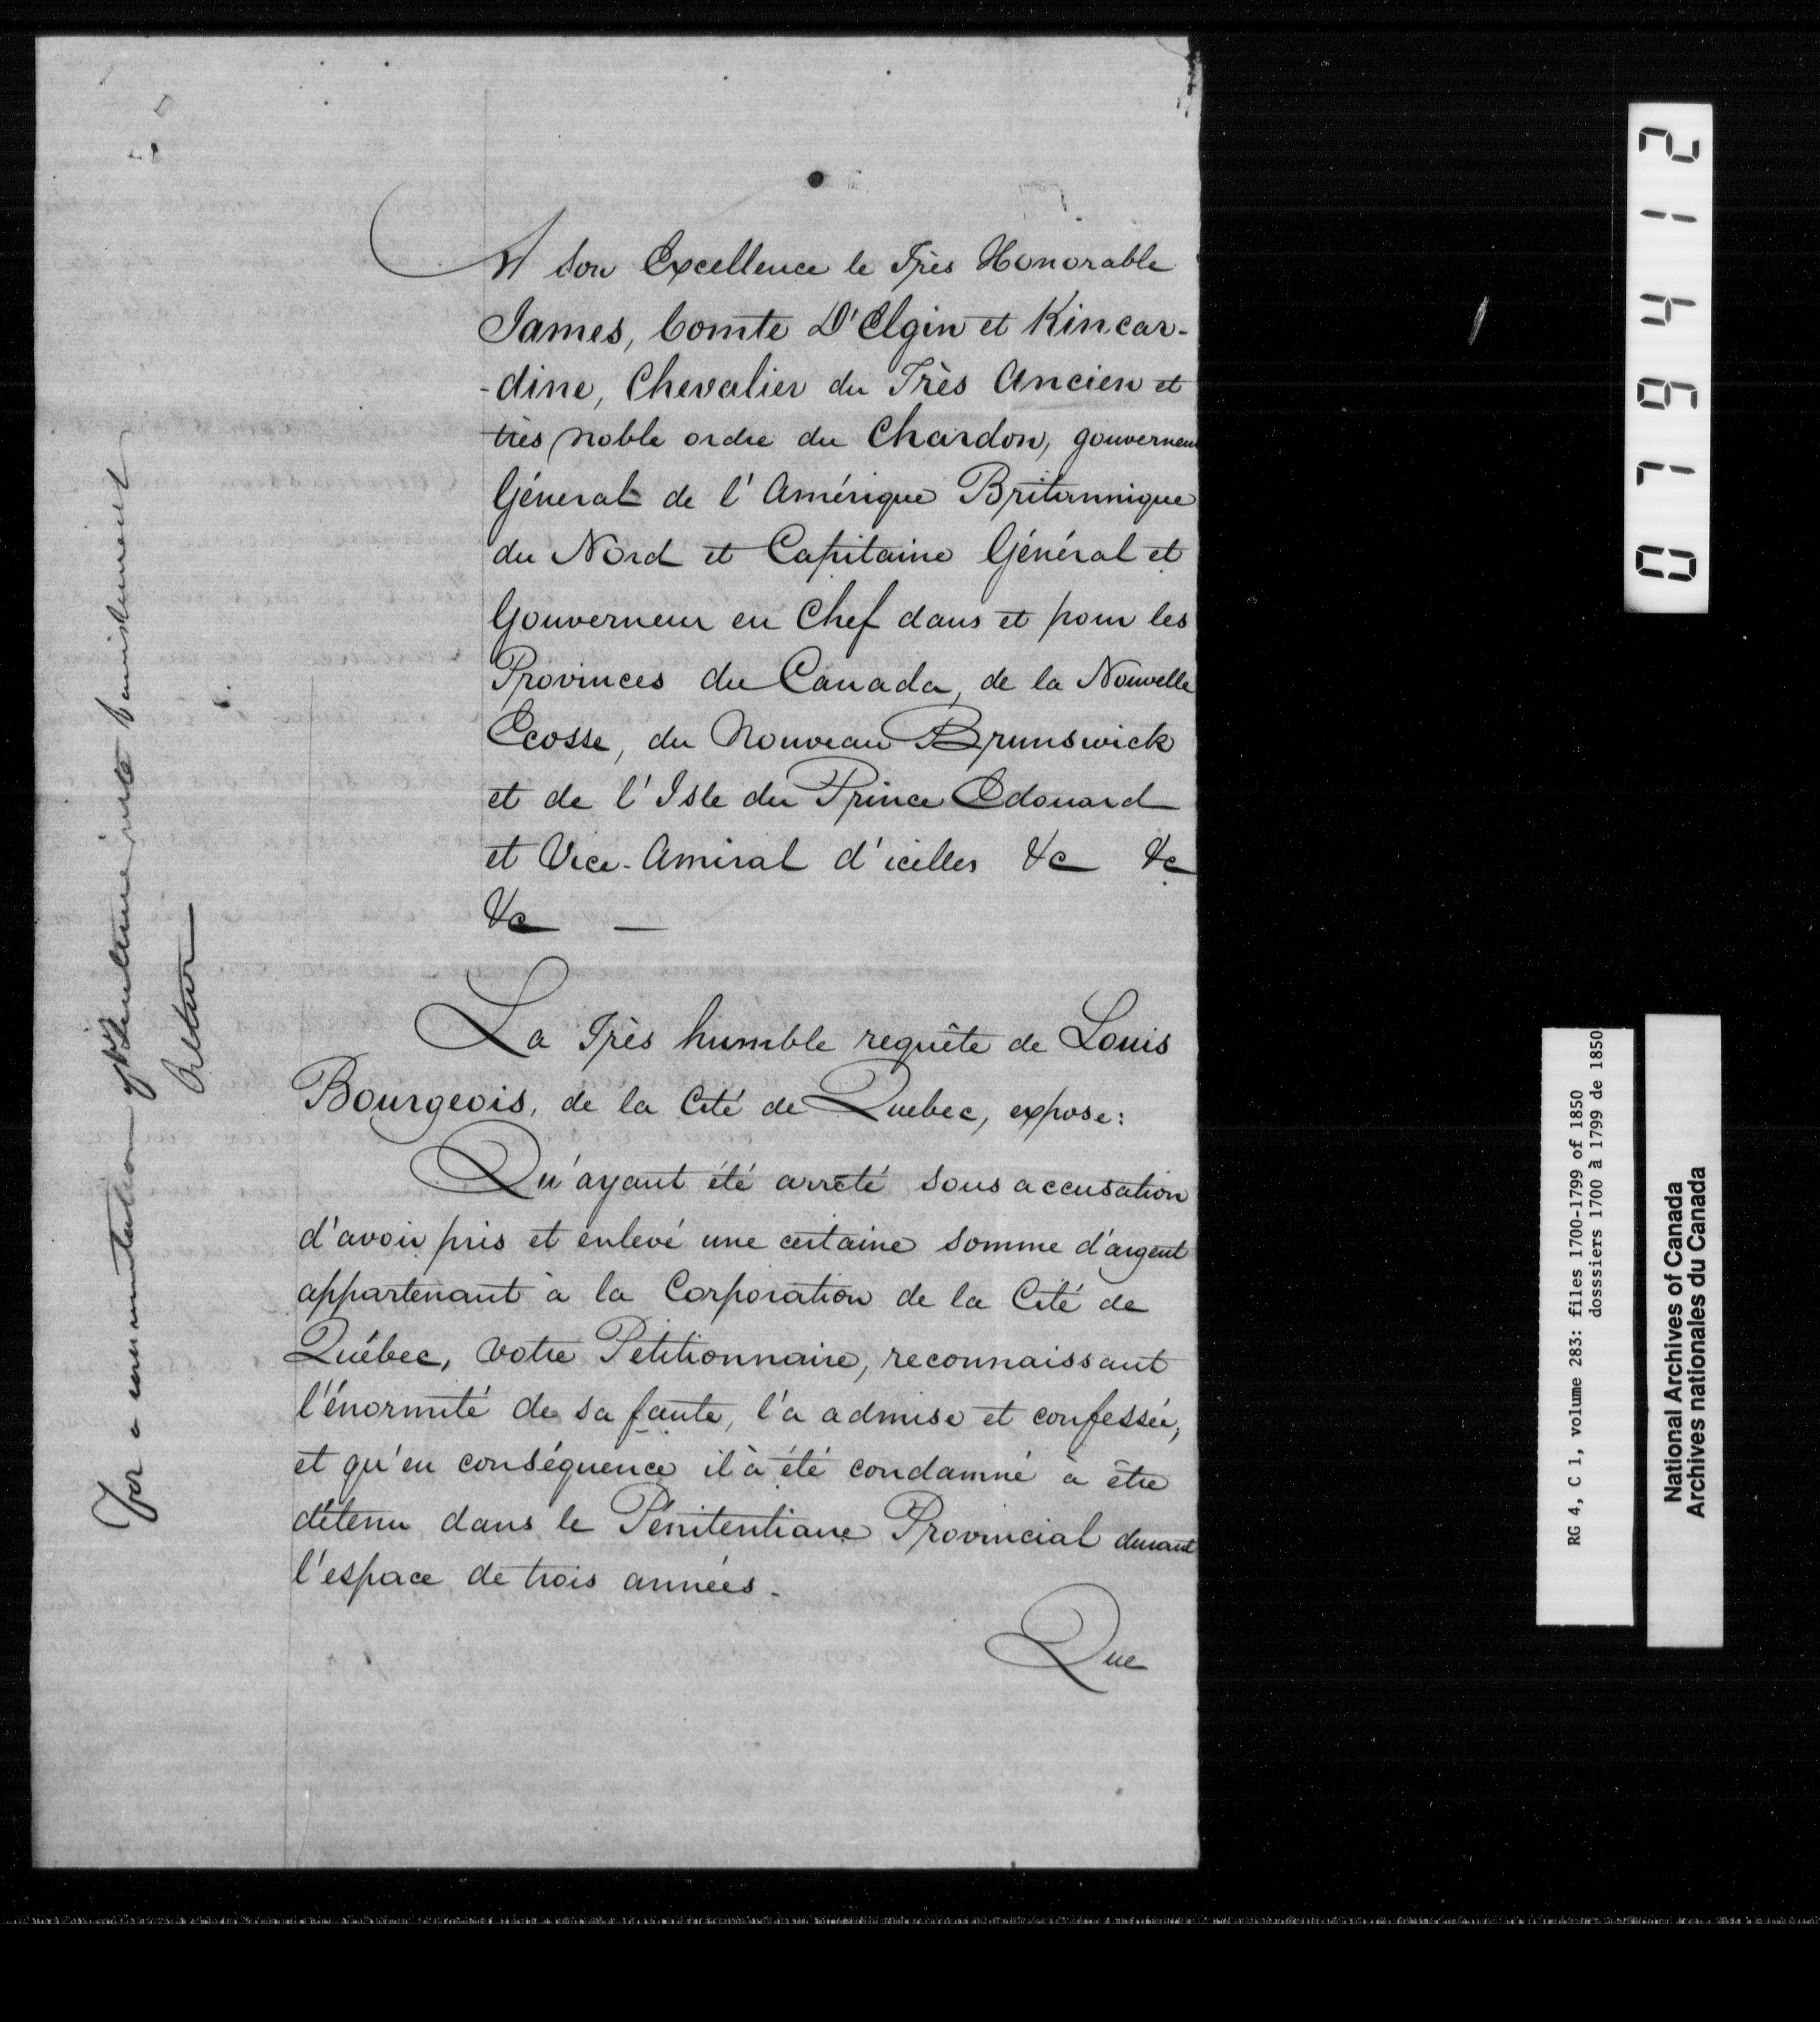 A Son Excellence le Très Honorable
James, Comte D'Elgin et Kincar-
-dine, Chevalier du Très Ancien et
très noble ordre du Chardon, gouverneur
Géneral de l'Amérique Britannique
du Nord et Capitaine Général et
Gouverneur en Chef dans et pour les
Provinces du Canada, de la Nouvelle
Ecosse, du Nouveau Brunswick
et de l'Isle du Prince Edouard
et Vice-Amiral d'icelles &c &c
&c —
La Très humble requête de Louis
Bourgeois, de la Cité de Quebec, expose:
Qu'ayant été arrêté sous accusation
d'avoir pris et enlevé une certaine somme d'argent
appartenant à la Corporation de la Cité de
Québec, Votre Pétitionnaire, reconnaissant
l'énormité de sa faute, l'a admise et confessée,
et qu'en conséquence il à été condamné à être
détenu dans le Pénitentiaire Provincial durant
l'espace de trois années.
Que
For a commutation of Sentence into banishment
079412
RG 4, C 1, volume 283: files 1700-1799 of 1850
dosssiers 1700 à 1799 de 1850
National Archives of Canada
Archives nationales du Canada